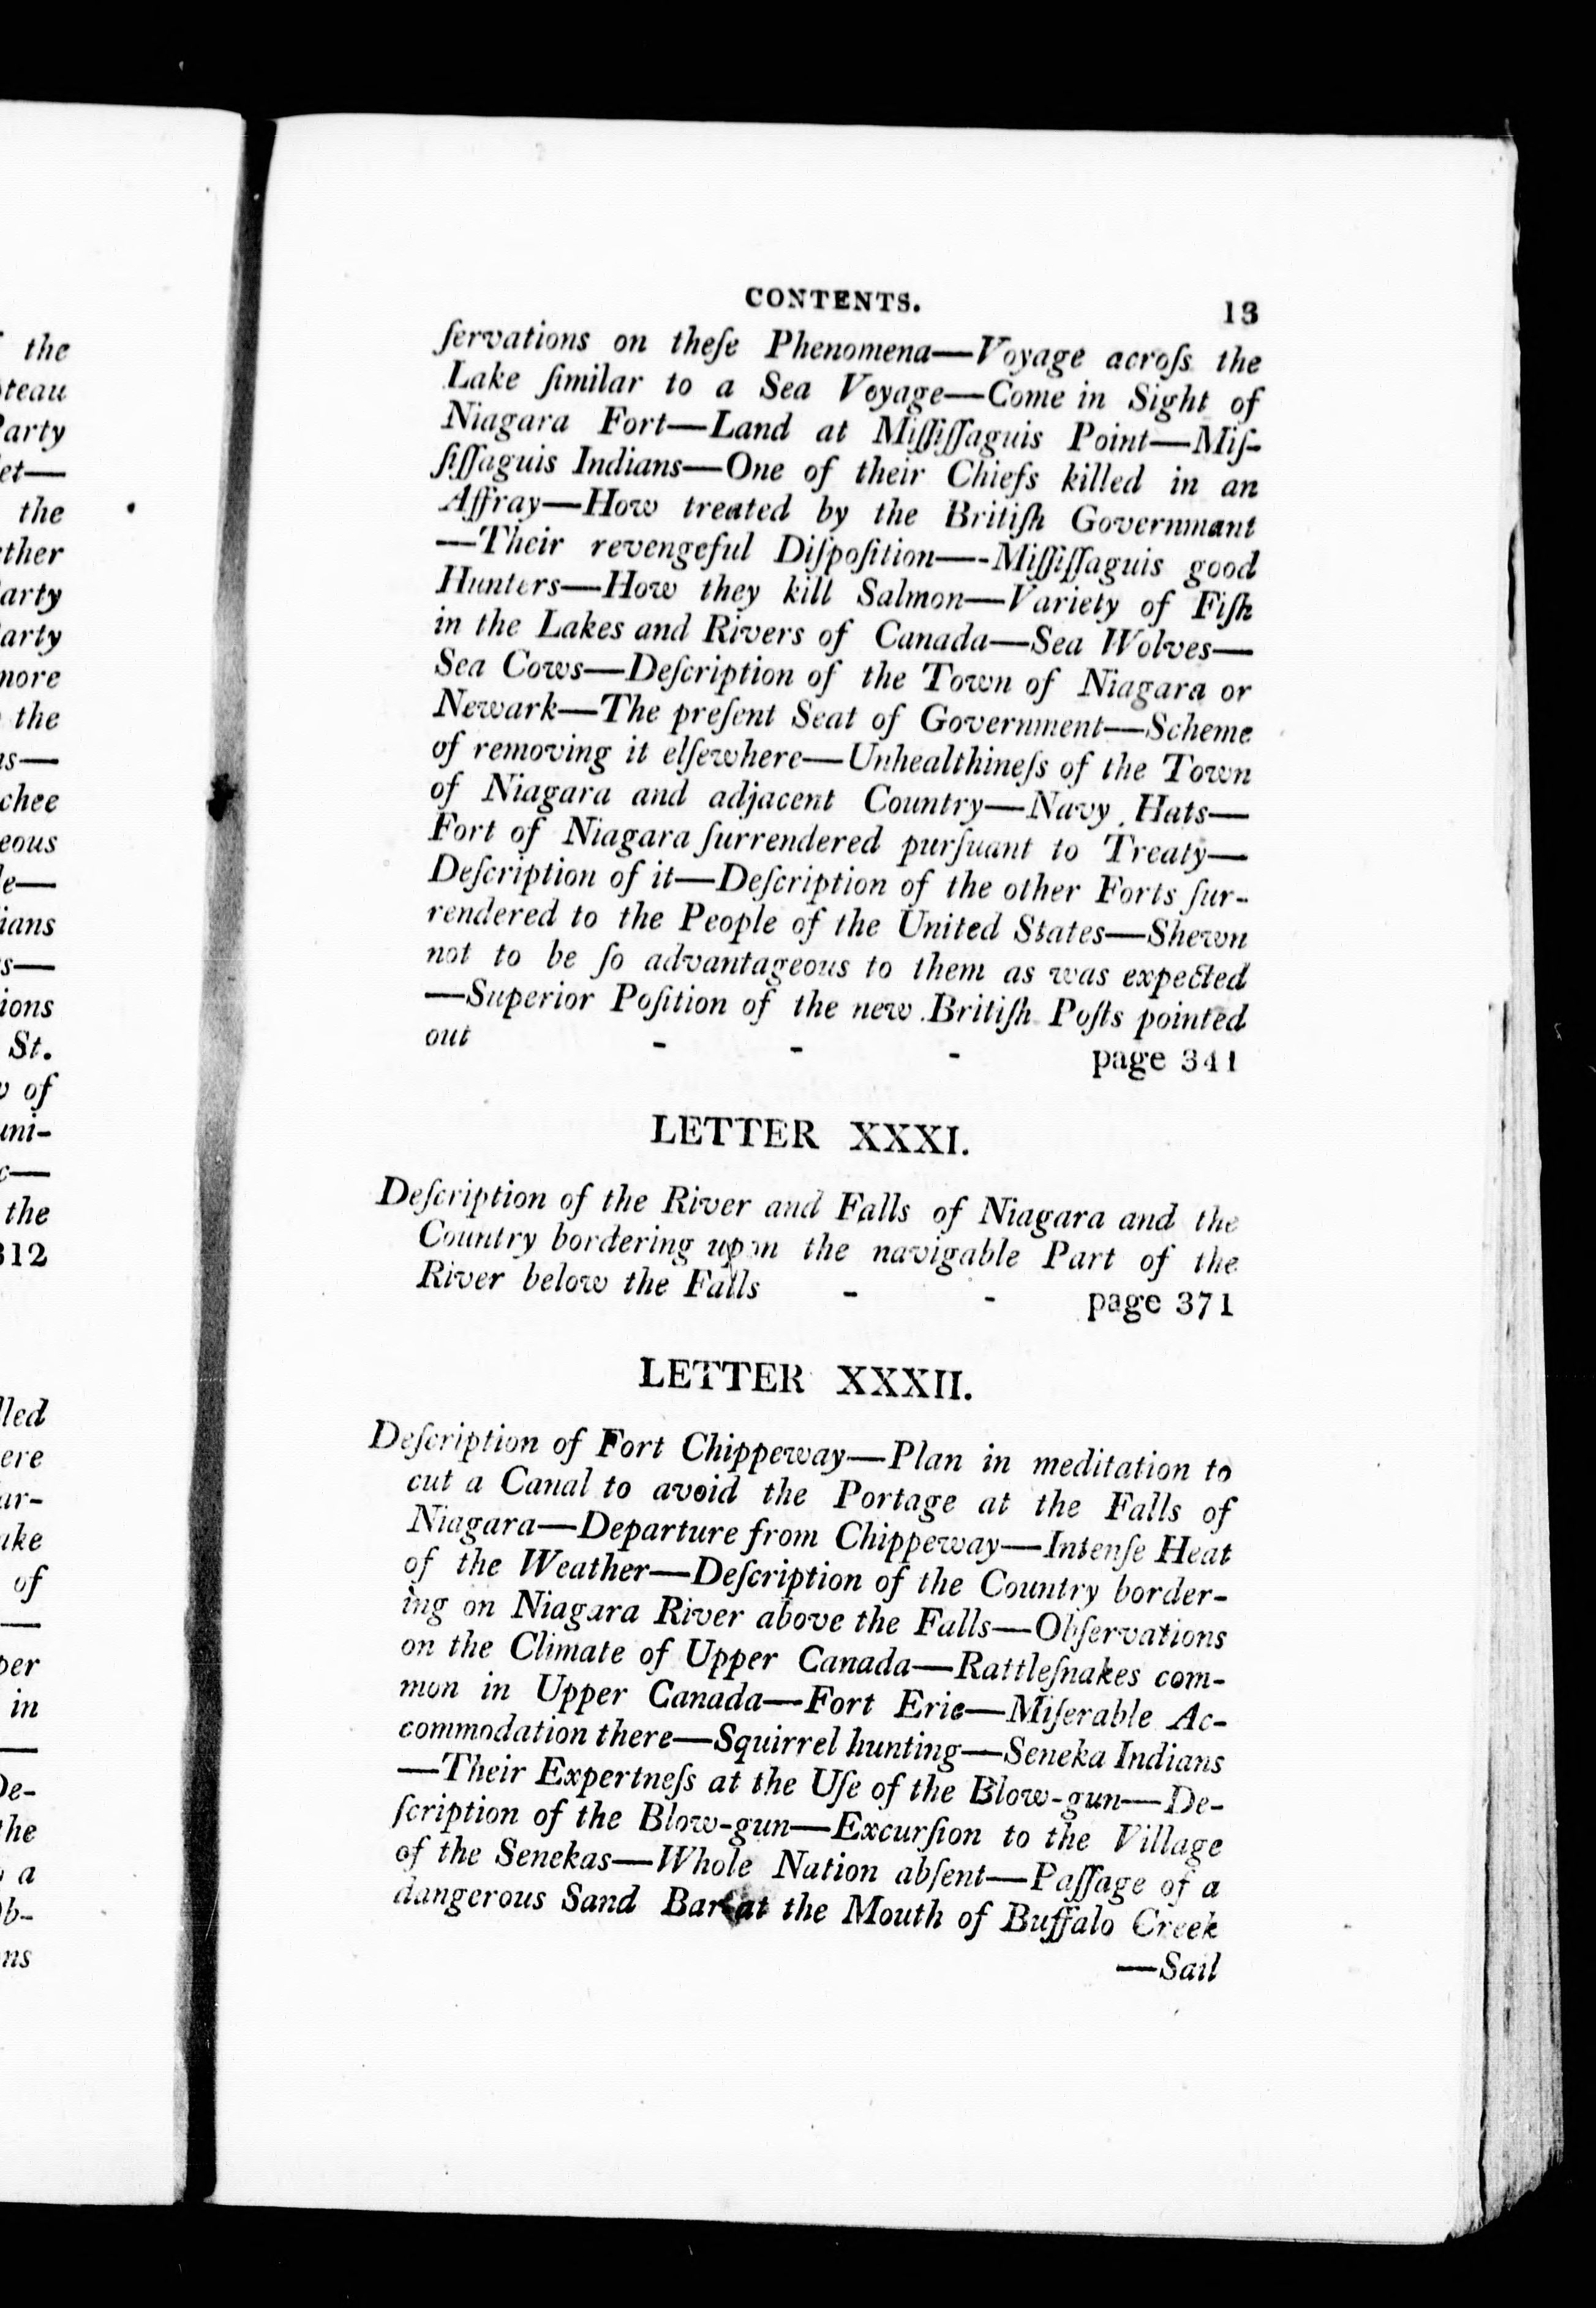 CONTENTS. 13
ſervations on theſe Phenomena—Voyage acroſs the
Lake ſimilar to a Sea Voyage—Come in Sight of
Niagara Fort—Land at Miſſiſſaguis Point—Miſ-
ſiſſaguis Indians—One of their Chiefs killed in an
Affray—How treated by the Britiſh Governmant
—Their revengeful Diſpoſition—-Miſſiſſaguis good
Hunters—How they kill Salmon—Variety of Fiſh
in the Lakes and Rivers of Canada—Sea Wolves—
Sea Cows—Deſcription of the Town of Niagara or
Newark—The preſent Seat of Government—Scheme
of removing it elſewhere—Unhealthineſs of the Town
of Niagara and adjacent Country—Navy Hats—
Fort of Niagara ſurrendered purſuant to Treaty—
Deſcription of it—Deſcription of the other Forts ſur-
rendered to the People of the United States—Shewn
not to be ſo advantageous to them as was expected
—Superior Poſition of the new Britiſh Poſts pointed
out - - - page 341
LETTER XXXI.
Deſcription of the River and Falls of Niagara and the
Country bordering upon the navigable Part of the
River below the Falls - - page 371
LETTER XXXII.
Deſcription of Fort Chippeway—Plan in meditation to
cut a Canal to avoid the Portage at the Falls of
Niagara—Departure from Chippeway—Intenſe Heat
of the Weather—Deſcription of the Country border-
ing on Niagara River above the Falls—Obſervations
on the Climate of Upper Canada—Rattleſnakes com-
mon in Upper Canada—Fort Erie—Miſerable Ac-
commodation there—Squirrel hunting—Seneka Indians
—Their Expertneſs at the Uſe of the Blow-gun—De-
ſcription of the Blow-gun—Excurſion to the Village
of the Senekas—Whole Nation abſent—Paſſage of a
dangerous Sand Bar at the Mouth of Buffalo Creek
—Sail